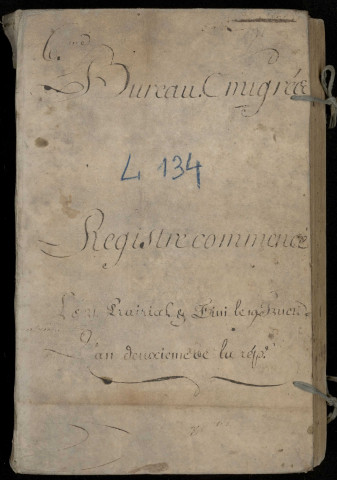 6.me
Bureau. Emigrés
L 134
Registre commencé
Le Prairial & Fini le
L'an deuxieme de la rép.